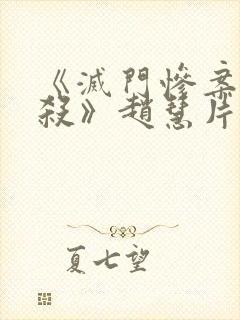 《滅門慘案
殺》趙慧片
夏七望